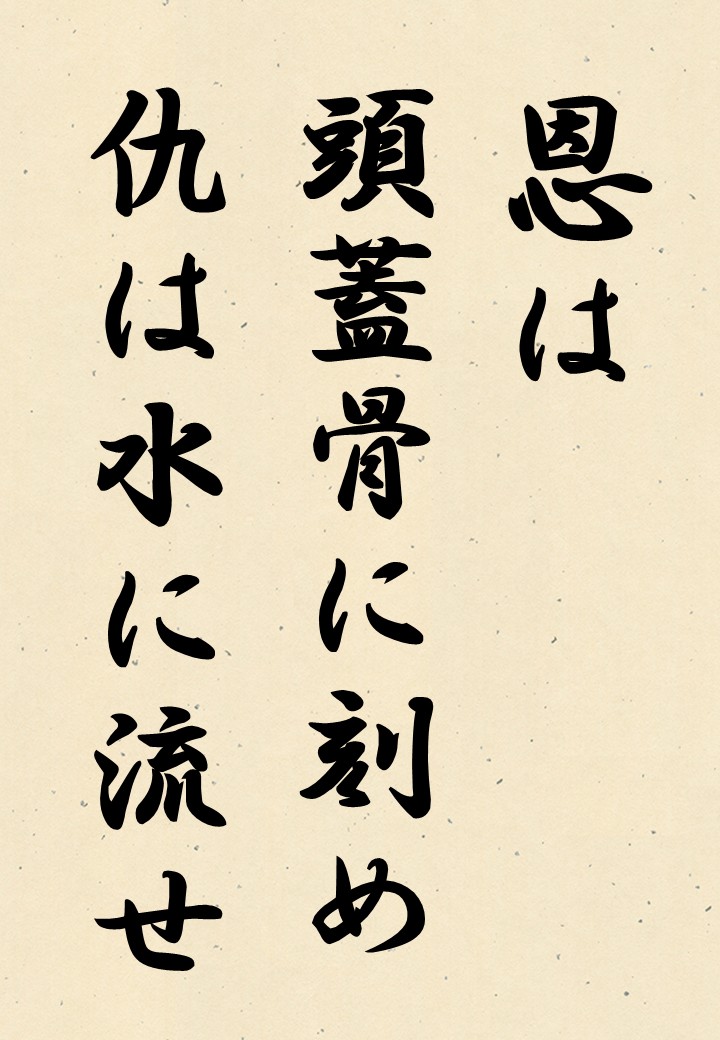 恩は
頭蓋骨に刻め
仇は水に流せ